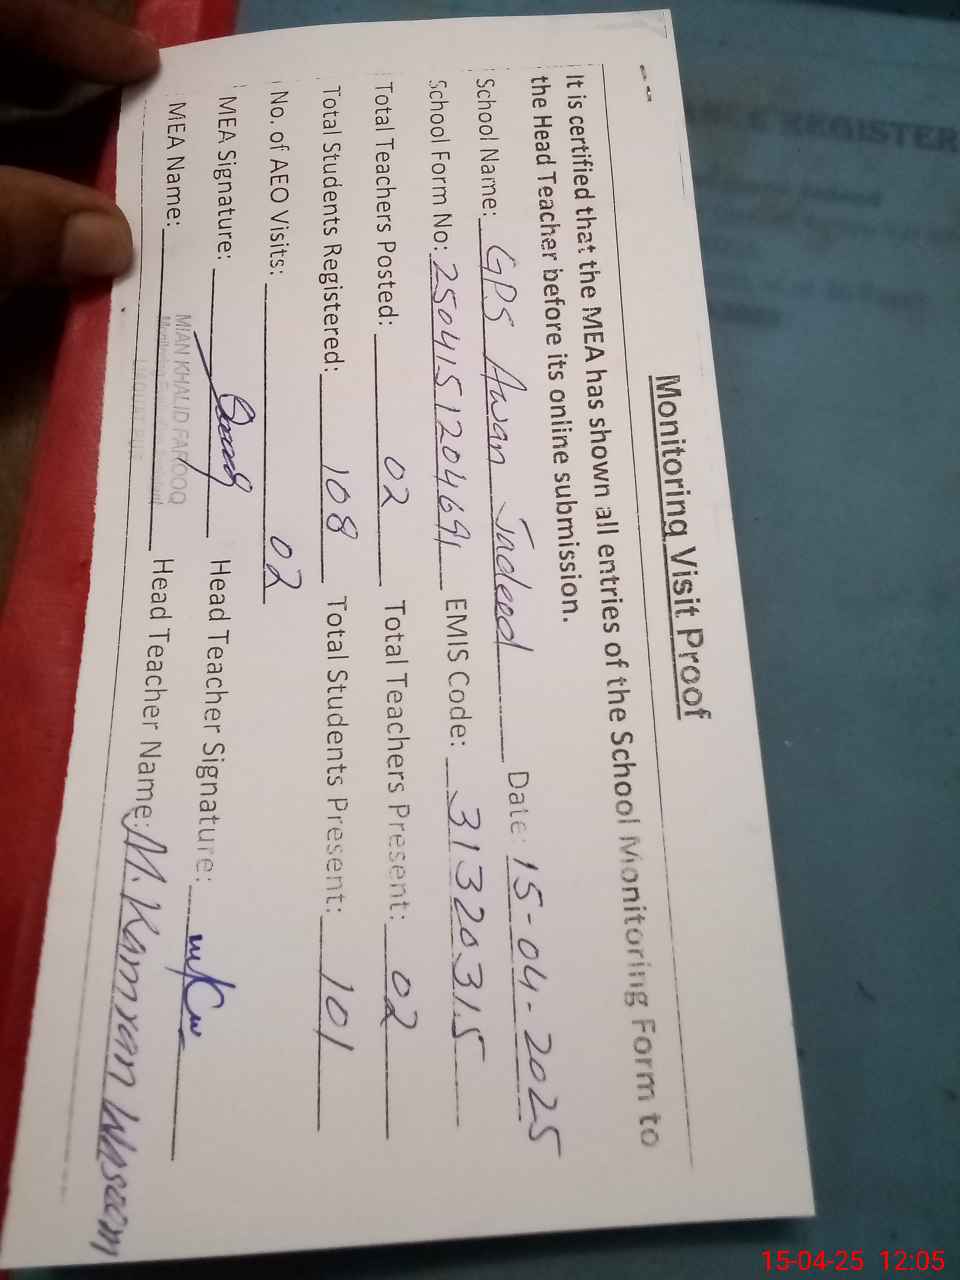 Monitoring Visit Proof
It is certified that the MEA has shown all entries of the School Monitoring Form to
the Head Teacher before its online submission.
School Name: GPS Awan Jadeed Date: 15-04-2025
School Form No: 2504151204691 EMIS Code: 31320315
Total Teachers Posted: 02 Total Teachers Present: 02
Total Students Registered: 108 Total Students Present: 101
No. of AEO Visits: 02
MEA Signature: Head Teacher Signature:
MIAN KHALID FAROOQ
MEA Name: Head Teacher Name: M. Kamran Waseem
REGISTER
15-04-25 12:05